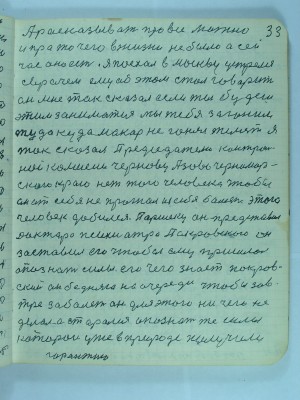 33
А рассказыват про все можно
и про то чего в жизни не было а сей
час он ест. я поехал в москву
с врачем ему об этом стал говорит
он мне так сказал если ты будеш
этим заниматся мы тебя загоним
туда куда макар не гонял телят я
так сказал Председателю контрол
ной комисии чернову Азово черномор-
скова краю нет того человека чтобы
он от себя не прогнал из себя
человек добился. он представил
доктаро психиатра Покровского он
заставил его чтобы ему пришлос
опознат силы его чего знает покров-
ский он беднова на очереди чтобы зав-
тра заболет он для этого ни чего не
делал а старался опознат же силы
которои уже в природе получили
гарантию